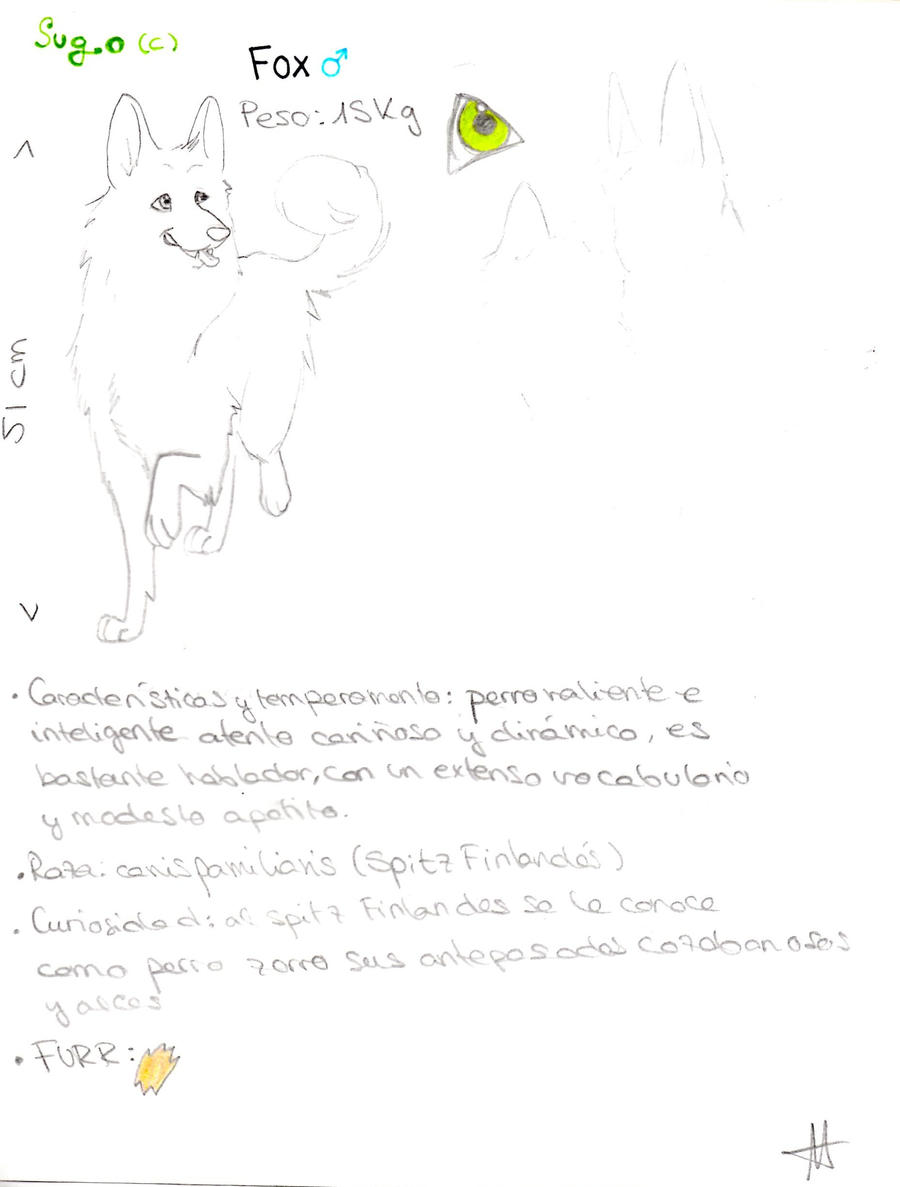 Sug.o (c)
Fox ♂
Peso: 15Kg
51 cm
• Características y temperamento: perro valiente e
inteligente atento cariñoso y dinámico, es
bastante hablador, con un extenso vocabulario
y modesto apetito.
• Raza: canis familiaris (Spitz Finlandés)
• Curiosidad: al spitz Finlandes se le conoce
como perro zorro sus antepasados cazaban osos
y alces
• FURR: